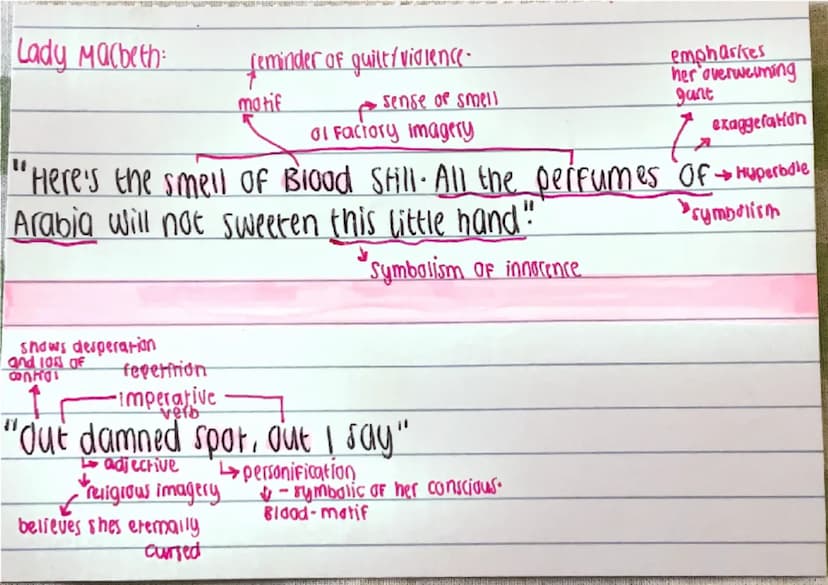 Lady Macbeth:
reminder of guilt/violence.
motif
sense of smell
olfactory imagery
emphasises
her overwelming
guilt
exaggeration
"Here's the smell of Blood still. All the perfumes of
Hyperbole
symbolism
Arabia will not sweeten this little hand".
symbolism of innocence
shows desperation
and loss of
control
repetition
imperative
verb
"Out damned spot, out I say"
adjective
personification
religious imagery
- symbolic of her conscious.
Blood-motif
believes shes eternally
cursed